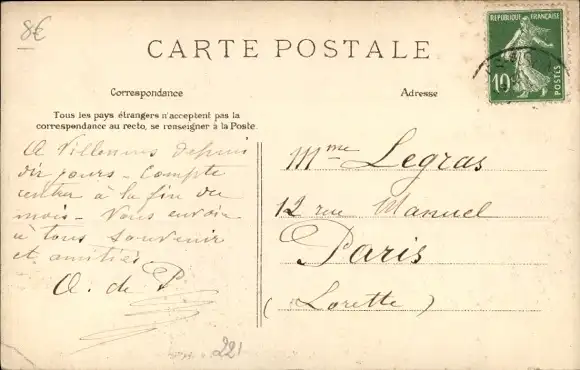 8€
CARTE POSTALE
REPUBLIQUE FRANÇAISE
10
POSTES
Correspondance
Adresse
Tous les pays étrangers n'acceptent pas la
correspondance au recto, se renseigner à la Poste.
A Villennes depuis
dix jours - Compte
rentrer à la fin du
mois - Vous envoie
à tous souvenir
et amitiés
A. de P
Mme Legras
12 rue Manuel
Paris
(Lorette)
221